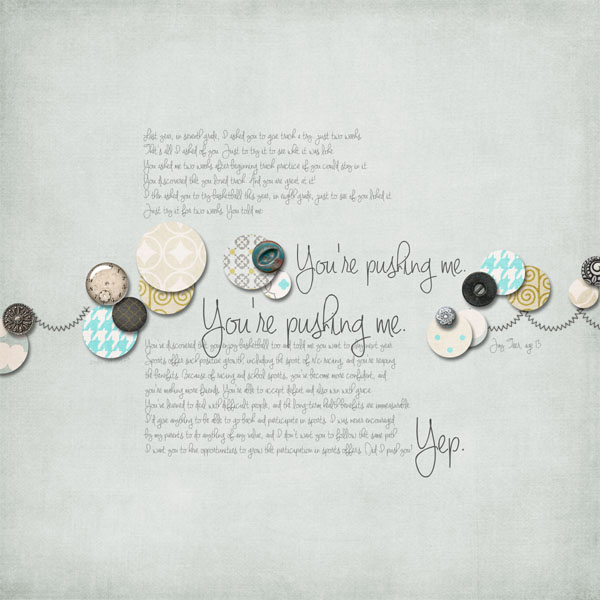 Last year, in seventh grade, I asked you to give track a try. Just two weeks.
That's all I asked of you. Just to try it to see what it was like.
You asked me two weeks after beginning track practice if you could stay in it.
You discovered that you loved track. And you are great at it!
I then asked you to try basketball this year, in eighth grade, just to see if you liked it.
Just try it for two weeks. You told me:
You're pushing me.
You're pushing me.
You've discovered that you enjoy basketball too and told me you want to next year.
Sports offer such positive growth, including the sport of racing, and you're reaping
the benefits. Because of racing and school sports, you've become more confident, and
you're making more friends. You're able to accept defeat and also win with grace.
You've learned to deal with difficult people, and the long-term health benefits are immeasurable.
I'd give anything to be able to go back and participate in sports. I was never encouraged
by my parents to do anything of any value, and I don't want you to follow that same path.
I want you to have opportunities to grow that participation in sports offers. Did I push you?
Yep.
age 13